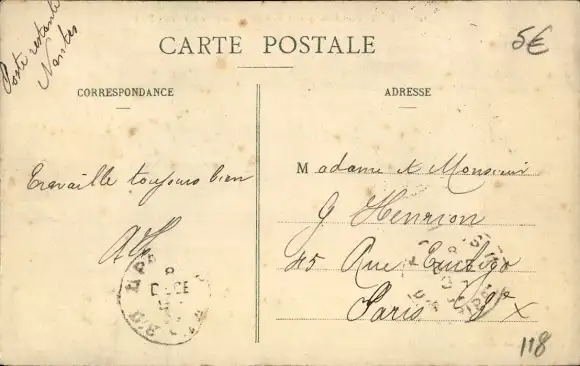 Poste restante
Nantes
5€
CARTE POSTALE
CORRESPONDANCE
ADRESSE
Travaille toujours bien
AH
Madame et Monsieur
G Henrion
45 Rue Turbigo
Paris
118